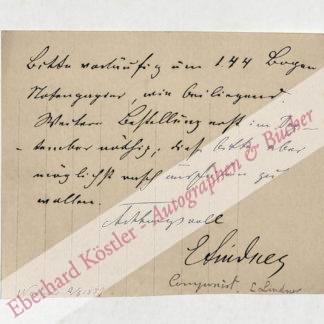 Bitte vorläufig um 144 Bogen
Notenpapier, wie beiliegend.
Weitere Bestellung erst im Sep-
tember nöthig; diese bitte aber
möglichst rasch ausführen zu
wollen.
Achtungsvoll
E Lindner
Componist E Lindner
Eberhard Köstler - Autographen & Bücher